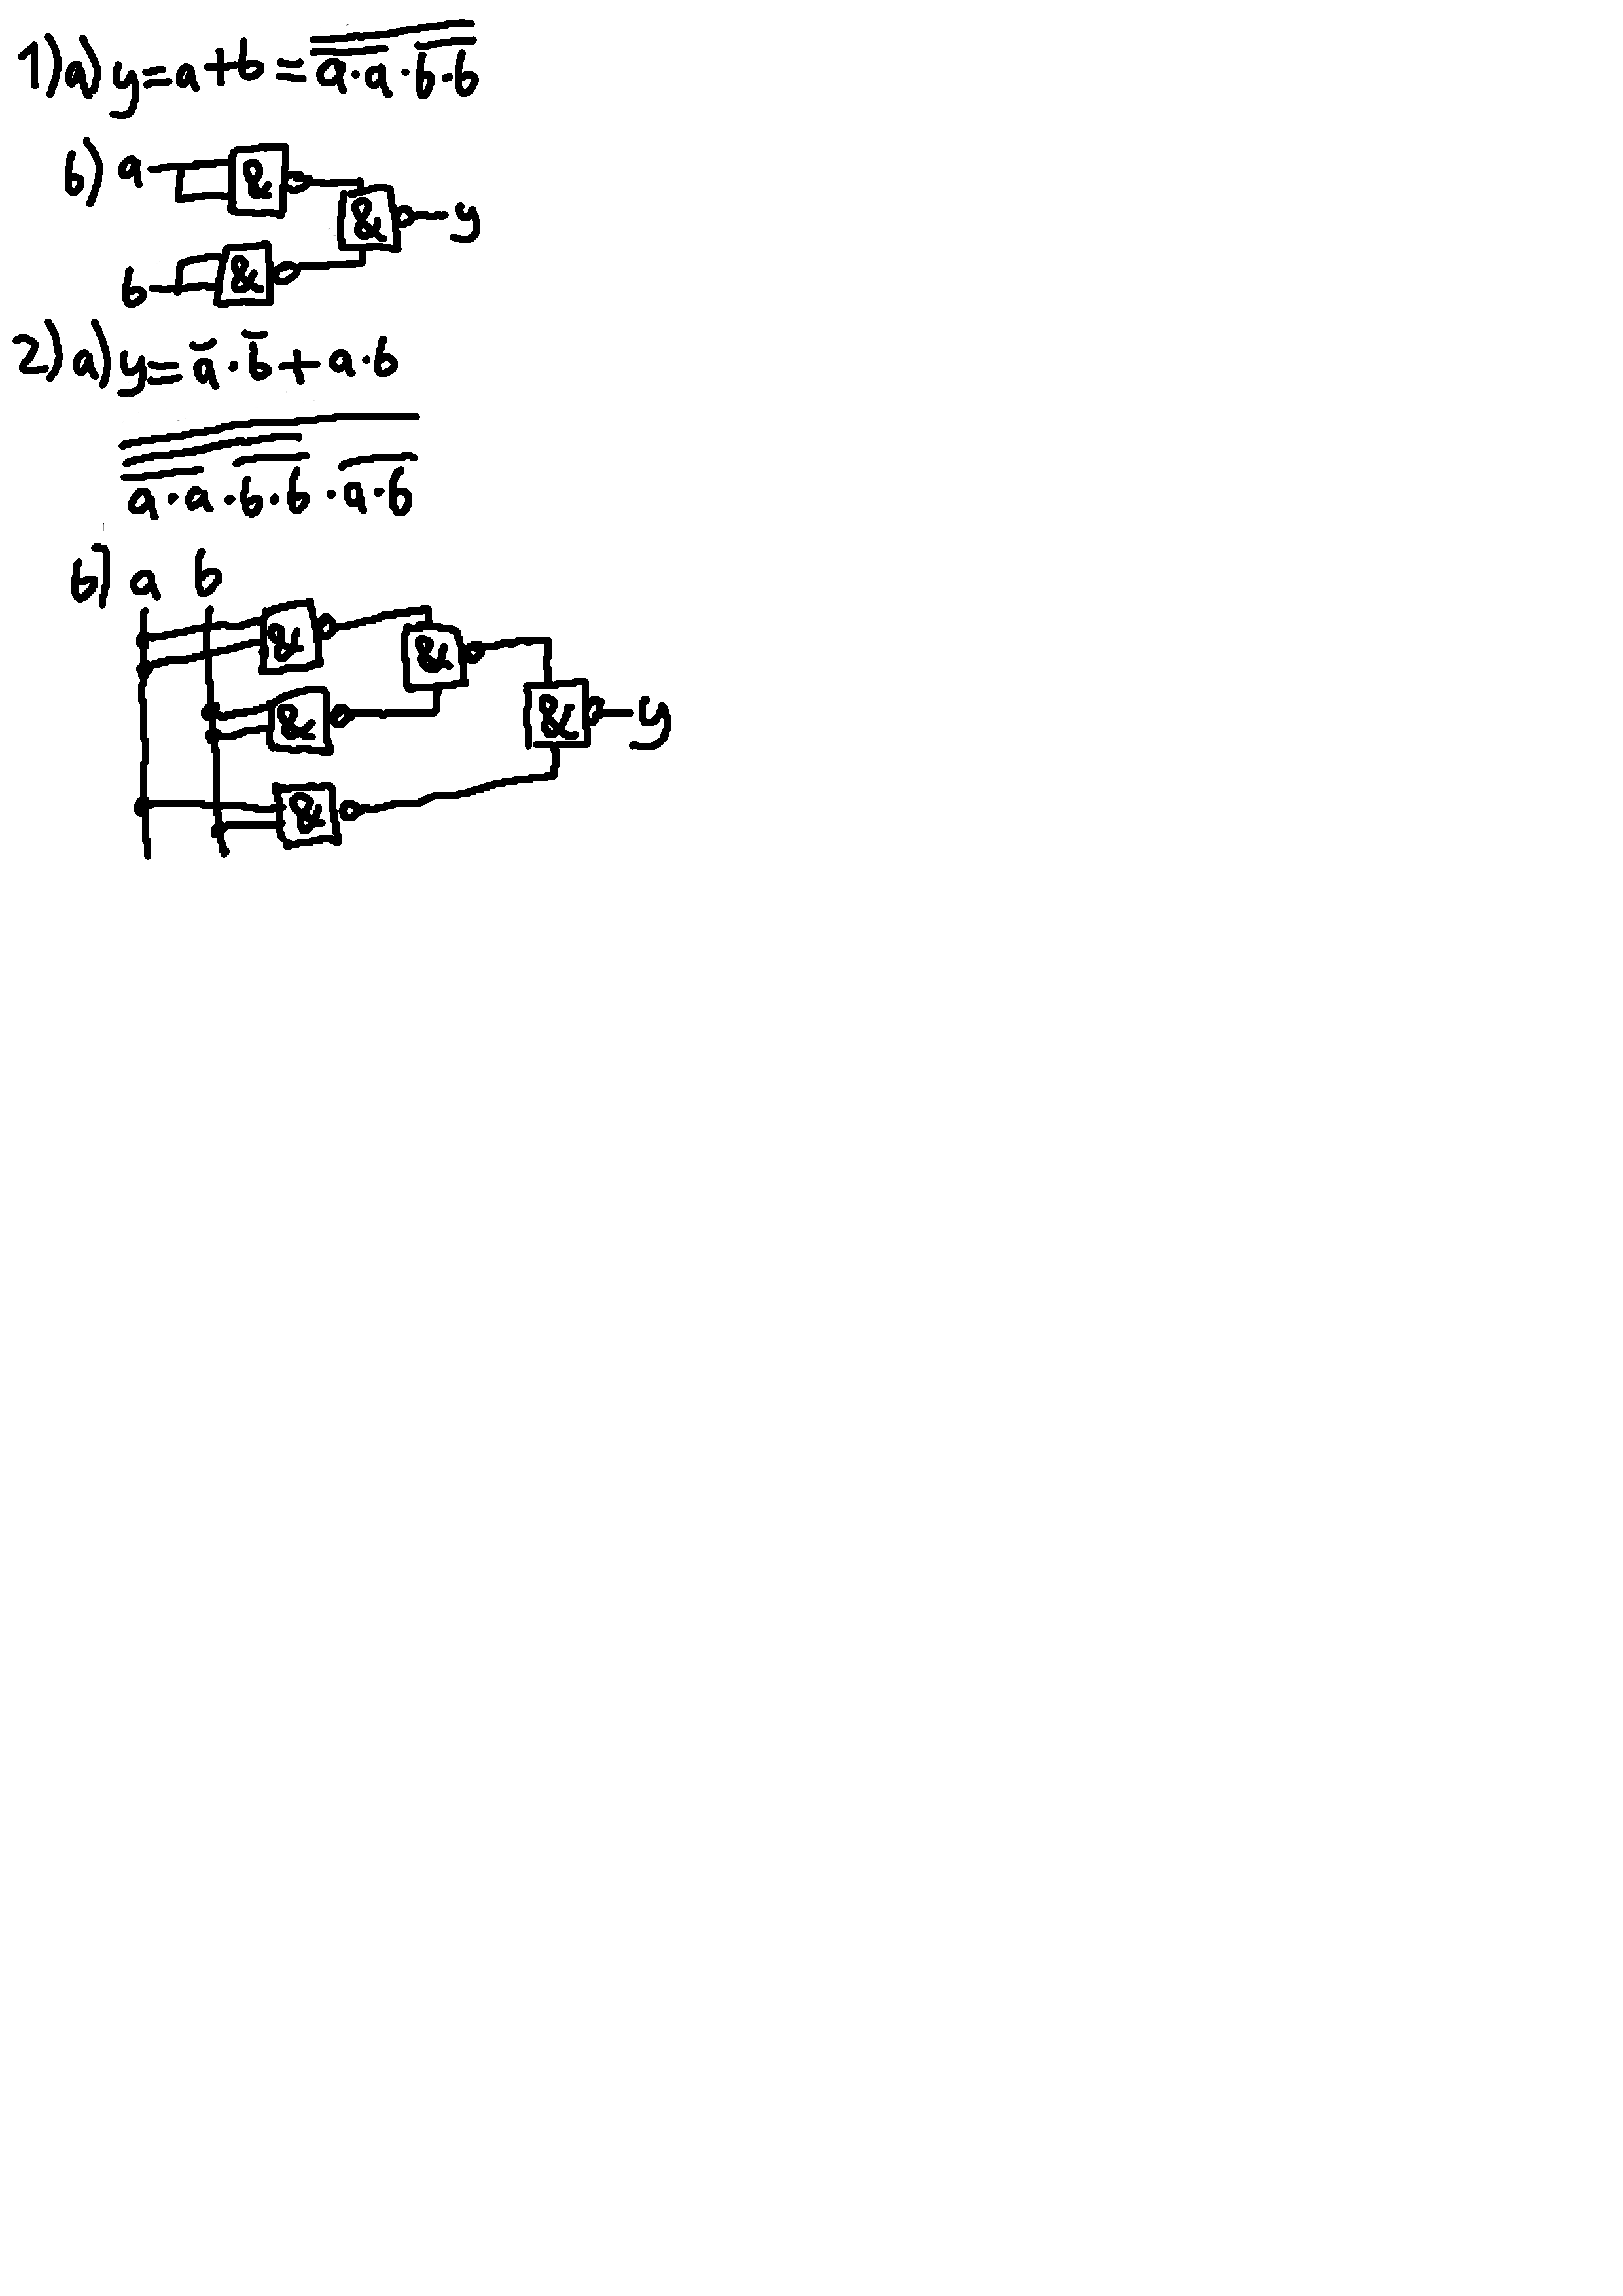 1) a) y = a + b = \overline{\overline{a·a}·\overline{b·b}}
b) a & & y
b &
2) a) y = \overline{a}·\overline{b} + a·b
\overline{\overline{\overline{a·a}·\overline{b·b}}·\overline{a·b}}
b) a b
& &
& & y
&